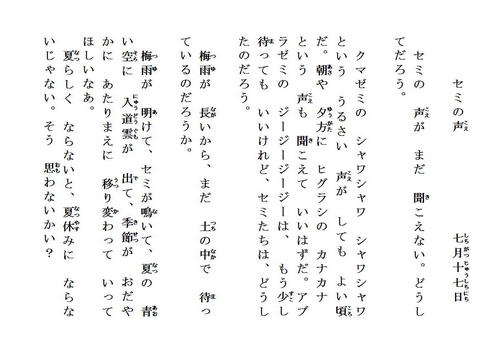 セミの声
七月十七日
セミの 声が まだ 聞こえない。どうし
てだろう。
クマゼミの シャワシャワ シャワシャワ
という うるさい 声が しても よい頃
だ。朝や 夕方に ヒグラシの カナカナ
という 声も 聞こえて いいはずだ。アブ
ラゼミの ジージージージーは、 もう少し
待っても いいけれど、セミたちは、どうし
たのだろう。
梅雨が 長いから、まだ 土の中で 待っ
ているのだろうか。
梅雨が 明けて、セミが鳴いて、夏の 青
い空に 入道雲が 出て、季節が おだや
かに あたりまえに 移り変わって いって
ほしいなあ。
夏らしく ならないと、夏休みに ならな
いじゃない。そう 思わないかい？